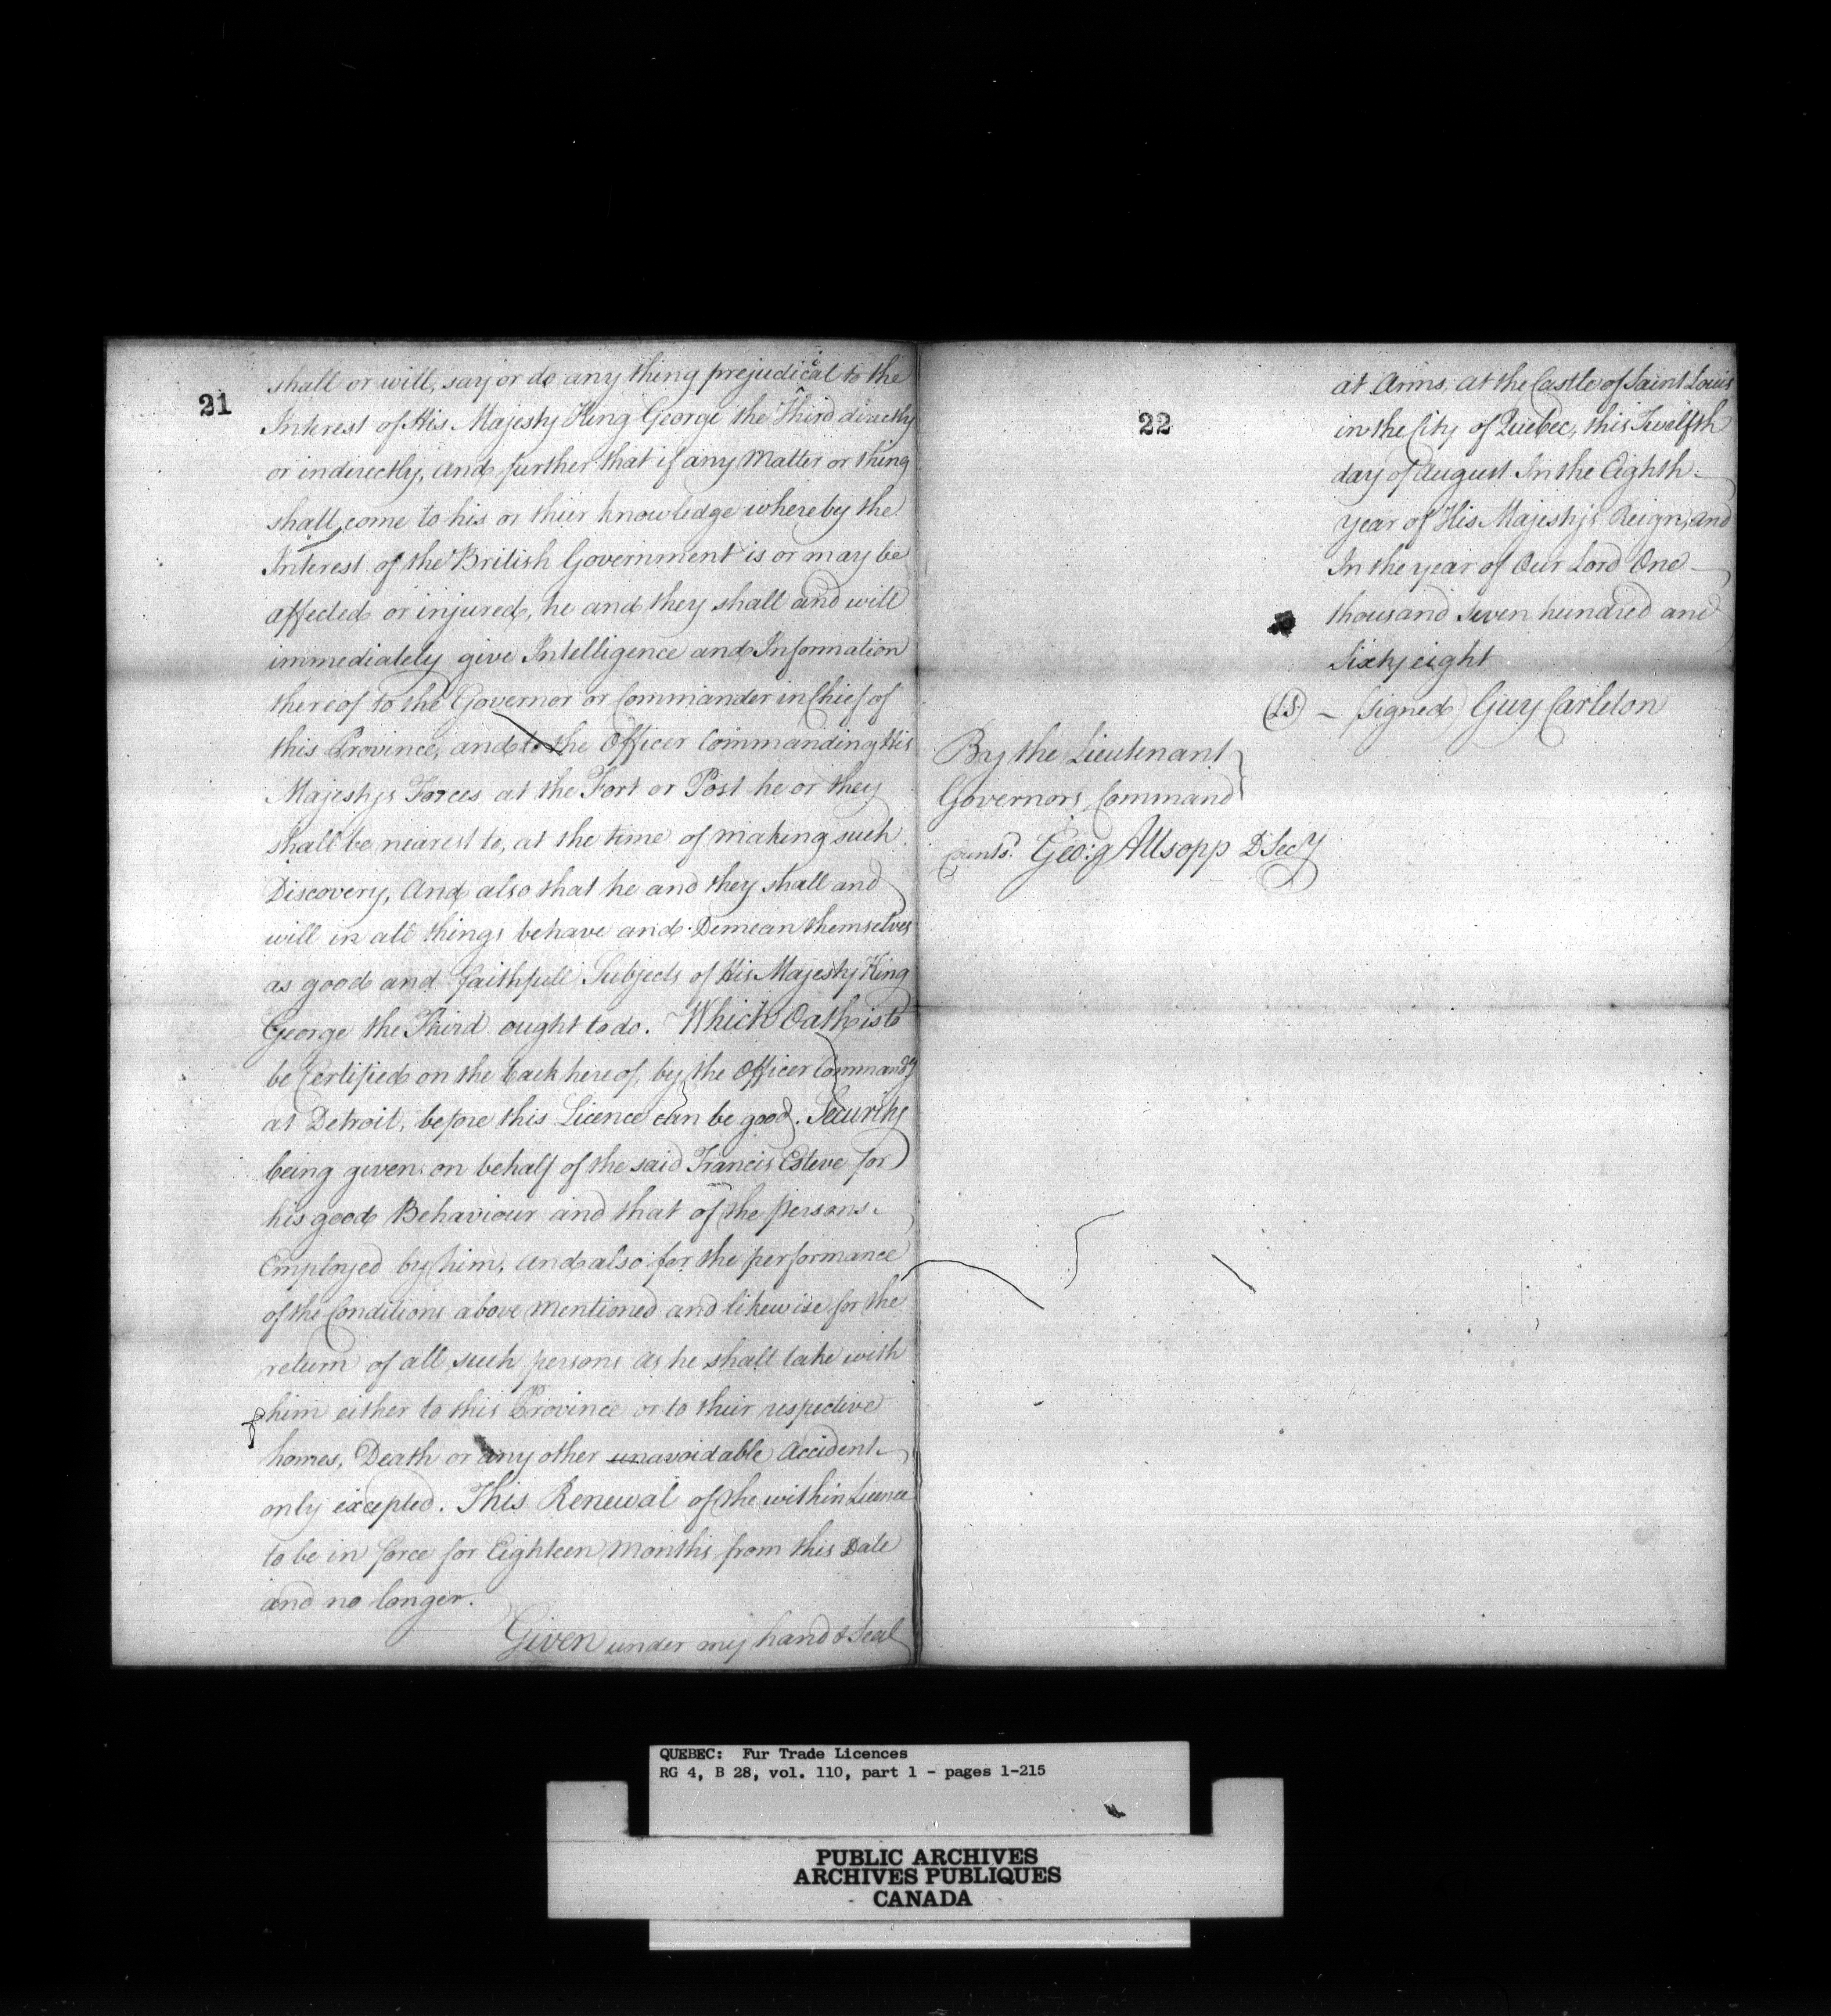 21
shall or will, say or do any thing prejudicial to the
Interest of His Majesty King George the Third directly
or indirectly, and further that if any Matter or thing
shall come to his or thier knowledge whereby the
Interest of the British Government is or may be
affected or injured, he and they shall and will
immediately give Intelligence and Information
thereof to the Governor or Commander in Chief of
this Province, and to the Officer Commanding His
Majestys Forces at the Fort or Post he or they
shall be nearest to, at the time of making such
Discovery, And also that he and they shall and
will in all things behave and Demean themselves
as good and faithfull Subjects of His Majesty King
George the Third ought to do. Which Oath is to
be Certified on the back hereof, by the Officer Command.g
at Detroit, before this Licence can be good. Security
being given on behalf of the said Francis Esteve for
his good Behaviour and that of the persons
Employed by him, and also for the performance
of the Conditions above mentioned and likewise for the
return of all such persons as he shall take with
him either to this Province or to their respective
homes, Death or any other unavoidable Accident
only excepted. This Renewal of the within Licence
to be in force for Eighteen Months from this Date
and no longer.
Given under my hand & Seal
22
at Arms, at the Castle of Saint Louis
in the City of Quebec, this Twelfth
day of August In the Eighth
year of His Majesty's Reign, and
In the year of Our Lord One
thousand Seven hundred and
Sixty eight
(LS) - (signed) Guy Carleton
By the Lieutenant
Governors Command
Counts.d Geo:g Allsopp D Secy
QUEBEC: Fur Trade Licences
RG 4, B 28, vol. 110, part 1 - pages 1-215
PUBLIC ARCHIVES
ARCHIVES PUBLIQUES
CANADA